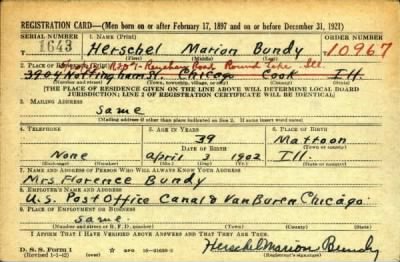 REGISTRATION CARD—(Men born on or after February 17, 1897 and on or before December 31, 1921)
SERIAL NUMBER 1. NAME (Print) ORDER NUMBER
1643 Herschel Marion Bundy 10967
(First) (Middle) (Last)
2. PLACE OF Round Lake Ill.
3904 Nottingham St. Chicago Cook Ill
[THE PLACE OF RESIDENCE GIVEN ON THE LINE ABOVE WILL DETERMINE LOCAL BOARD
JURISDICTION; LINE 2 OF REGISTRATION CERTIFICATE WILL BE IDENTICAL]
3. MAILING ADDRESS
Same
[Mailing address if other than place indicated on line 2. If same insert word same]
4. TELEPHONE 5. AGE IN YEARS 6. PLACE OF BIRTH
39 Mattoon
DATE OF BIRTH (Town or county)
None April 3 1902 Ill.
(Exchange) (Number) (Mo.) (Day) (Yr.) (State or country)
7. NAME AND ADDRESS OF PERSON WHO WILL ALWAYS KNOW YOUR ADDRESS
Mrs Florence Bundy
8. EMPLOYER'S NAME AND ADDRESS
U.S. Post Office Canal & Van Buren Chicago.
9. PLACE OF EMPLOYMENT OR BUSINESS
Same.
(Number and street or R. F. D. number) (Town) (County) (State)
I AFFIRM THAT I HAVE VERIFIED ABOVE ANSWERS AND THAT THEY ARE TRUE.
D. S. S. Form 1
(Revised 1-1-42) (over) Herschel Marion Bundy